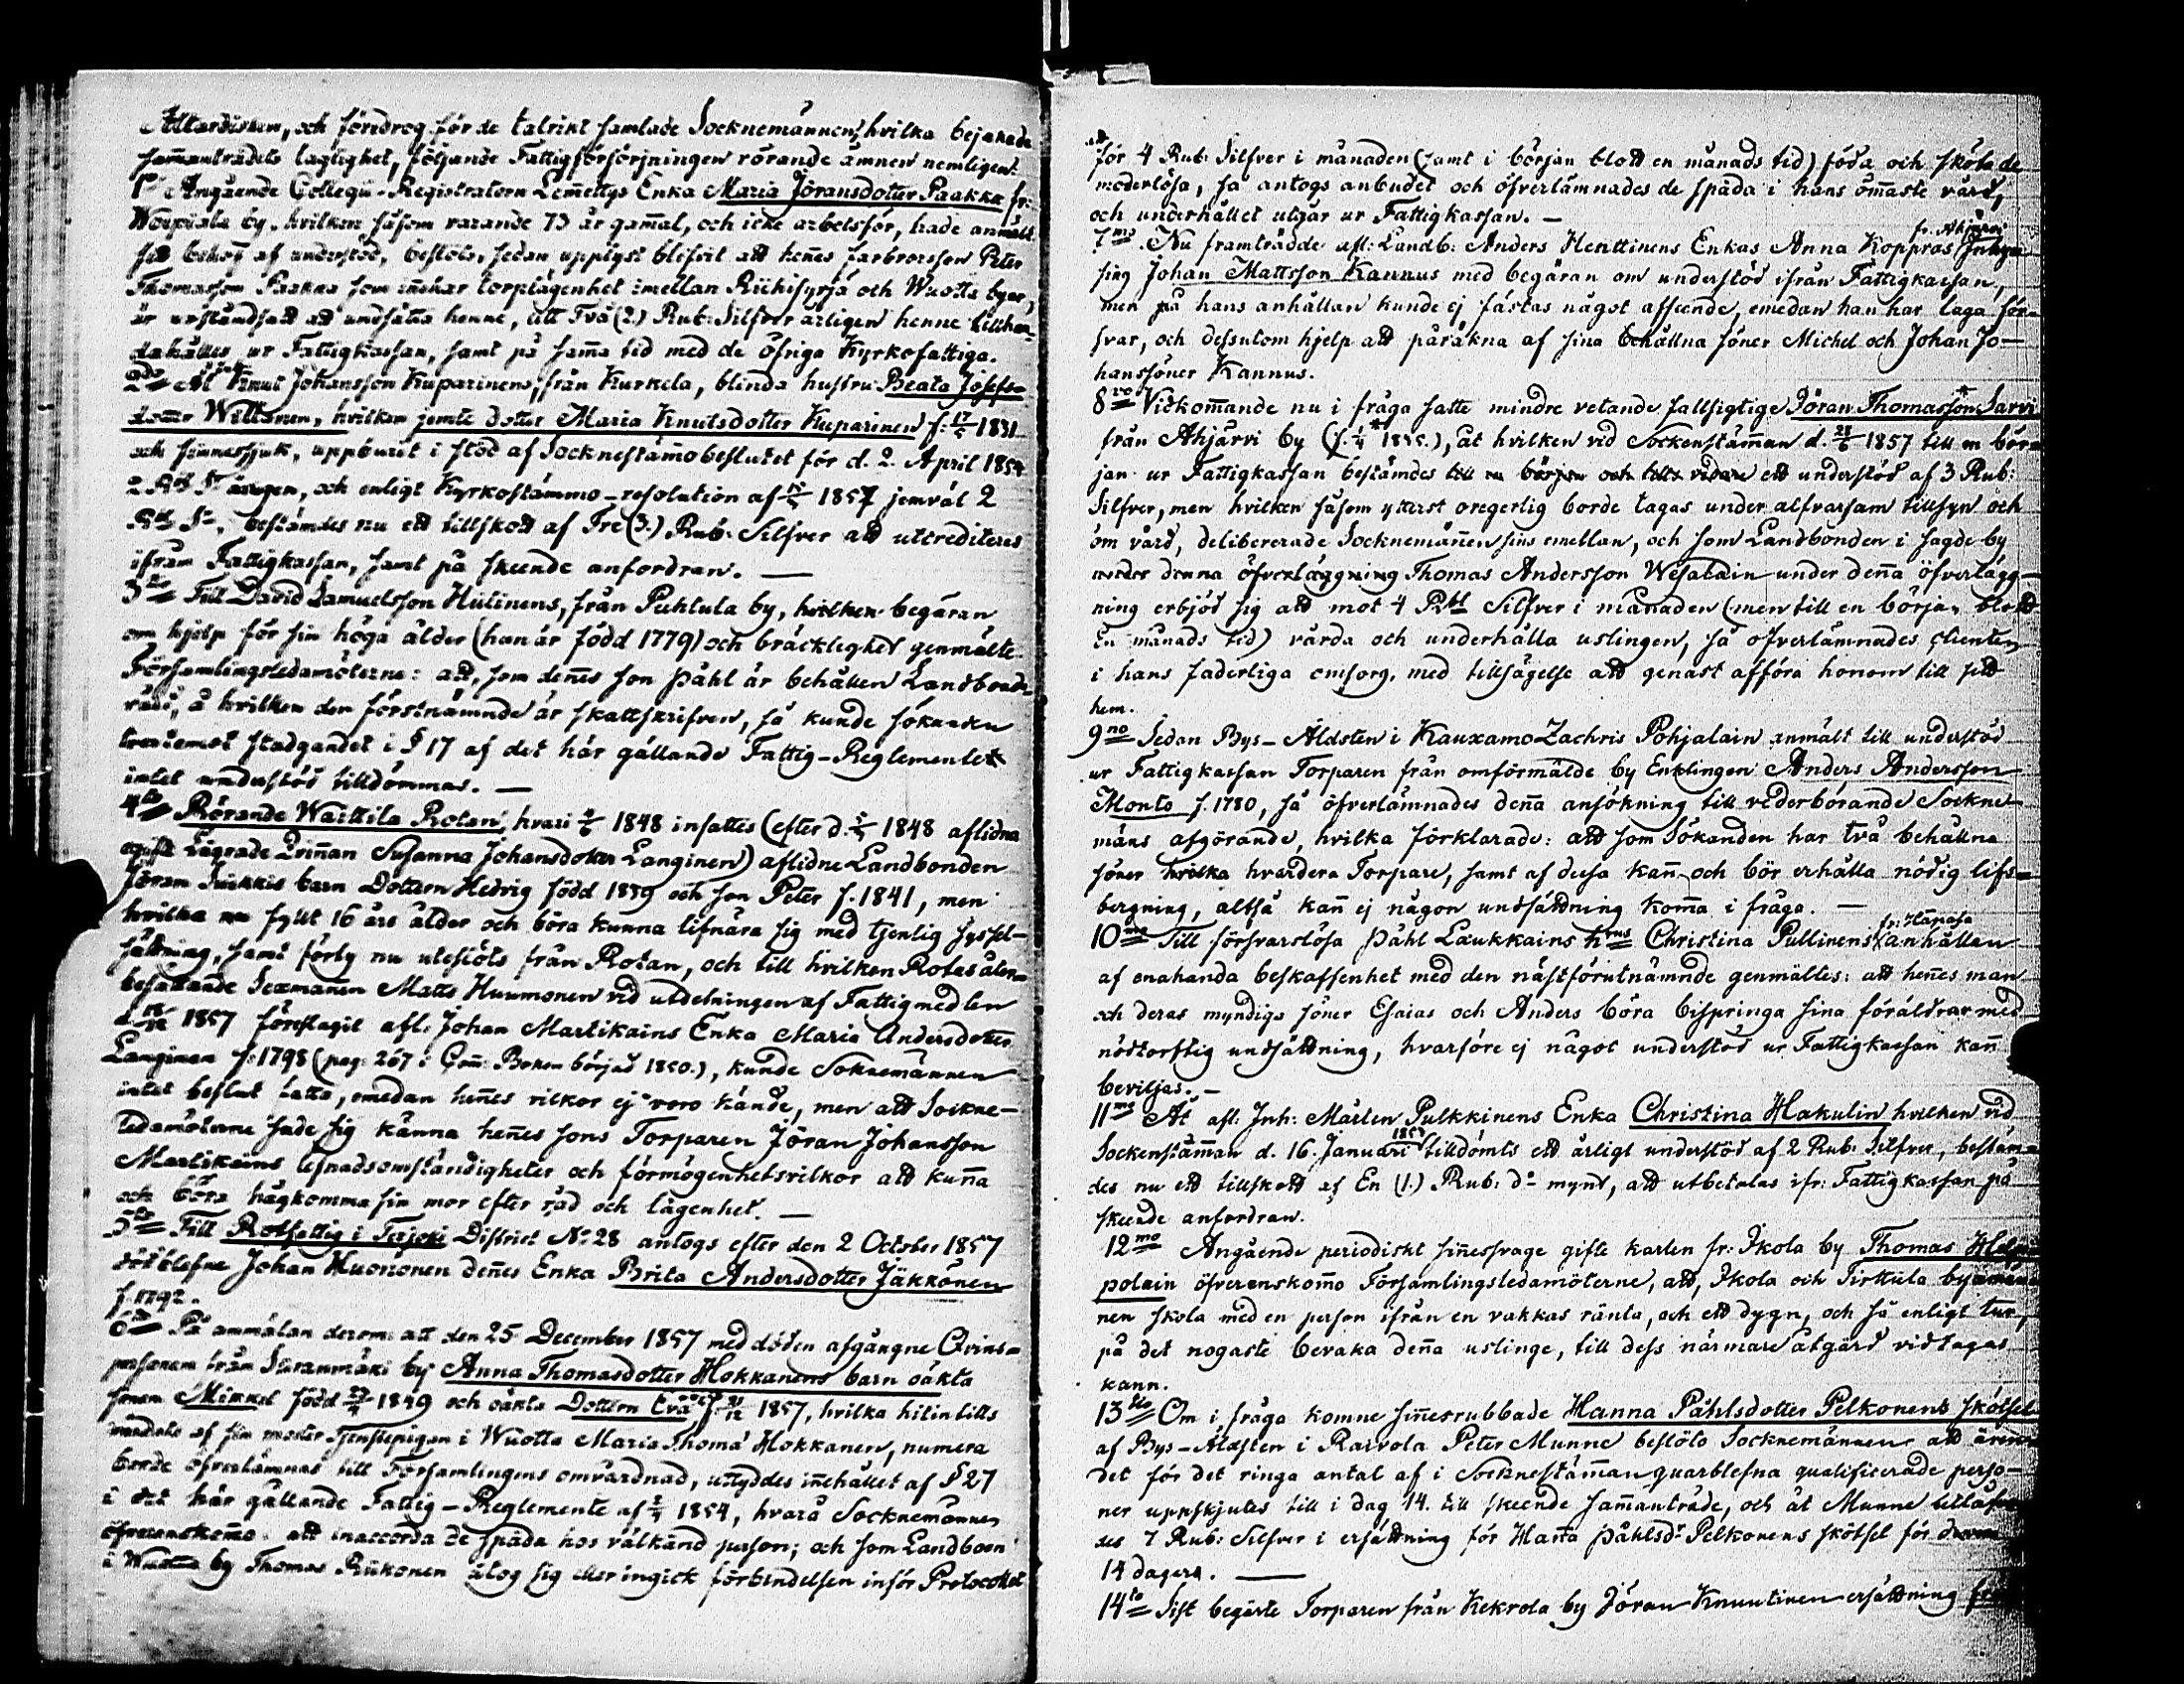 Altardisken, och föredrog för de talrikt samlade Socknemännen, hvilka bejakade
sam̃anträdets laglighet, följande Fattigförsörjningen rörande ämnen nemligen:
1º Angående Collegii-Registratorn Lemettys Enka Maria Jöransdotter Paakka fr:
Woipiala by, hvilken såsom varande 73 år gam̃al, och icke arbetsför, hade anmält
sitt behof af understöd, beslöts, sedan upplyst blifvit att hen̄es farbrorsson Peter
Thomasson Paakka som in̄ehar torplägenhet imellan Riihisyrjä och Wuotta byar,
är urståndsatt att undsätta henne, att Två (2.) Rub: Silfver årligen henne tillhan-
dahålles ur Fattigkassan, samt på sam̃a tid med de öfriga Kyrkofattiga.
2do Åt Knut Johansson Kuparinens, från Kurkela, blinda hustru Beata Josefs-
dotter Willanen, hvilken jemte dotter Maria Knutsdotter Kuparinen f. 17/5 1831
och sinnessjuk, uppburit i stöd af Socknestäm̃obeslutet för d. 2. April 1854
2 Rbl Sr årligen, och enligt Kyrkostämmo-resolution af 1857 jemväl 2
Rbl Sr, bestämdes nu ett tillskott af Tre (3.) Rub: Silfver att utcrediteras
ifrån Fattigkassan, samt på skeende anfordran. —
3tio Till David Samuelsson Hütinens, från Puhtula by, hvilken begäran
om hjelp för sin höga ålder (han är född 1779) och bräcklighet genmälte
Församlingsledamöterne: att, som den̄es son Påhl är behållen Landbonde
, å hvilken den förstnämnde är skattskrifven, så kunde sökanden
tvertemot stadgandet i § 17 af det här gällande Fattig-Reglementet
intet understöd tilldömmas. —
4to Rörande Waittila Rotan, hvari 1848 insattes (efter d. 1848 aflidna
Lägrade Qvin̄an Susanna Johansdotter Langinen) aflidne Landbonden
Jöran Suikkis barn Dottern Hedvig född 1839 och son Peter f. 1841, men
hvilka nu fyllt 16 års ålder och böra kunna lifnära sig med tjenlig syssel-
sättning, samt förty nu uteslöts från Rotan, och till hvilken Rotas åten-
befallande Sexmannen Matts Huumonen vid utdelningen af Fattigmedlen
d. 1857 föreslagit afl. Johan Martikains Enka Maria Andersdotter
Langinen f. 1798 (pag. 267 i Com̃: Boken börjad 1850.), kunde Soknemännen
intet beslut fatta, emedan hen̄es vilkor ej voro kände, men att Sockne-
ledamöterne sade sig känna hen̄es sons Torparen Jöran Johansson
Martikains lefnadsomständigheter och förmögenhetsvilkor att kun̄a
och böra hågkomma sin mor efter råd och lägenhet. —
5to Till Rotfattig i Terjoki District No 28 antogs efter den 2 October 1857
dödblefne Johan Huononen den̄es Enka Brita Andersdotter Jäkkönen
f. 1792.
6to På anmälan derom: att den 25 December 1857 med döden afgångne Qvins-
personen från Suranmäki by Anna Thomasdotter Hokkanens barn oäkta
sonen Mikkel född 1849 och oäkta Dottern Eva, f. 1857, hvilka hitintills
vårdats af sin moster Tjenstepigan i Wuotta Maria Thoma dr Hokkanen, numera
borde öfverlämnas till Församlingens omvårdnad, uttyddes in̄ehållet af § 27
i det här gällande Fattig-Reglemente af 1854, hvarå Socknemännen
öfverenskom̃o att inaccorda de späda hos välkänd person; och som Landboen
i Wuotta by Thomas Riikonen åtog sig eller ingick förbindelsen inför Protocollet
att
för 4 Rub: Silfver i månaden (samt i början blott en månads tid) föda och sköta de
moderlösa, så antogs anbudet och öfverlämnades de späda i hans öm̃aste vård,
och underhållet utgår ur Fattigkassan. —
fr. Ahjärvi
7mo. Nu framträdde afl: Landb: Anders Henttinens Enkas Anna Koppras Inhy-
sing Johan Mattsson Kannus med begäran om understöd ifrån Fattigkassan,
men på hans anhållan kunde ej fästas något afseende, emedan han har laga för-
svar, och dessutom hjelp att påräkna af sina behållna söner Michel och Johan Jo-
hanssöner Kannus.
8vo Vidkom̃ande nu i fråga satte mindre vetande fallsigtige Jöran Thomasson* Sarvi
från Ahjärvi by (f. 1/4* 1835.), åt hvilken vid Sockenstäm̃an d. 28/6 1857 till en bör-
jan ur Fattigkassan bestämdes till en början och tills vidare ett understöd af 3 Rub:
Silfver, men hvilken såsom ytterst oregerlig borde tagas under alfvarsam tillsyn och
öm vård, delibererade Socknemän̄en sins emellan, och som Landbonden i sagde by
under denna öfverläggning Thomas Andersson Wesalain under den̄a öfverlägg-
ning erbjöd sig att mot 4 Rbl Silfver i månaden (men till en början blott
En månads tid) vårda och underhålla uslingen, så öfverlämnades clienten
i hans faderliga omsorg, med tillsägelse att genast afföra honom till sitt
hem.
9no Sedan Bys-Äldsten i Kauxamo Zachris Pohjalain anmält till understöd
ur Fattigkassan Torparen från omförmälde by Enklingen Anders Andersson
Monto f. 1780, så öfverlämnades den̄a ansökning till vederbörande Sockne-
mäns afgörande, hvilka förklarade: att som Sökanden har två behållna
söner hvilka hvardera Torpare, samt af dessa kan̄ och bör erhålla nödig lifs-
bergning, altså kan̄ ej någon undsättning kom̃a i fråga. —
fr: Hanasa
10mo Till försvarslösa Påhl Laukkains hrus Christina Pullinens anhållan
af enahanda beskaffenhet med den nästförutnämnde genmältes: att hen̄es man
och deras myndiga söner Esaias och Anders böra bispringa sina föräldrar med
nödtorftig undsättning, hvarföre ej något understöd ur Fattigkassan kan̄
beviljas. —
11mo Åt afl. Inh: Mårten Pulkkinens Enka Christina Hakulin hvilken vid
Sockenstäm̃an d. 16. Januari 1857 tilldömts ett årligt understöd af 2 Rub: Silfver, bestäm-
des nu ett tillskott af En (1.) Rub: do mynt, att utbetalas ifr: Fattigkassan på
skeende anfordran.
12mo Angående periodiskt sin̄essvage gifte karlen fr: Ikola by Thomas
polain öfverenskom̃o Församlingsledamöterne, att, Ikola och Tirttula
nen skola med en person ifrån en vakkas ränta, och ett dygn, och så enligt tur,
på det nogaste bevaka den̄a uslinge, till dess närmare åtgärd vidtagas
kann.
13tio Om i fråga komne sin̄esrubbade Hanna Påhlsdotter Pelkonens skötsel
af Bys-Äldsten i Raivola Peter Munne beslöto Socknemännen att ären-
det för det ringa antal af i Socknestäm̃an quarblefna qualificerade perso-
ner uppskjutes till i dag 14. till skeende sam̃anträde, och åt Munne
des 7 Rub: Silfver i ersättning för Han̄a Påhlsdr Pelkonens skötsel för
14 dagera. —
14to Sist begärte Torparen från Kekrola by Jöran Knuutinen ersättning